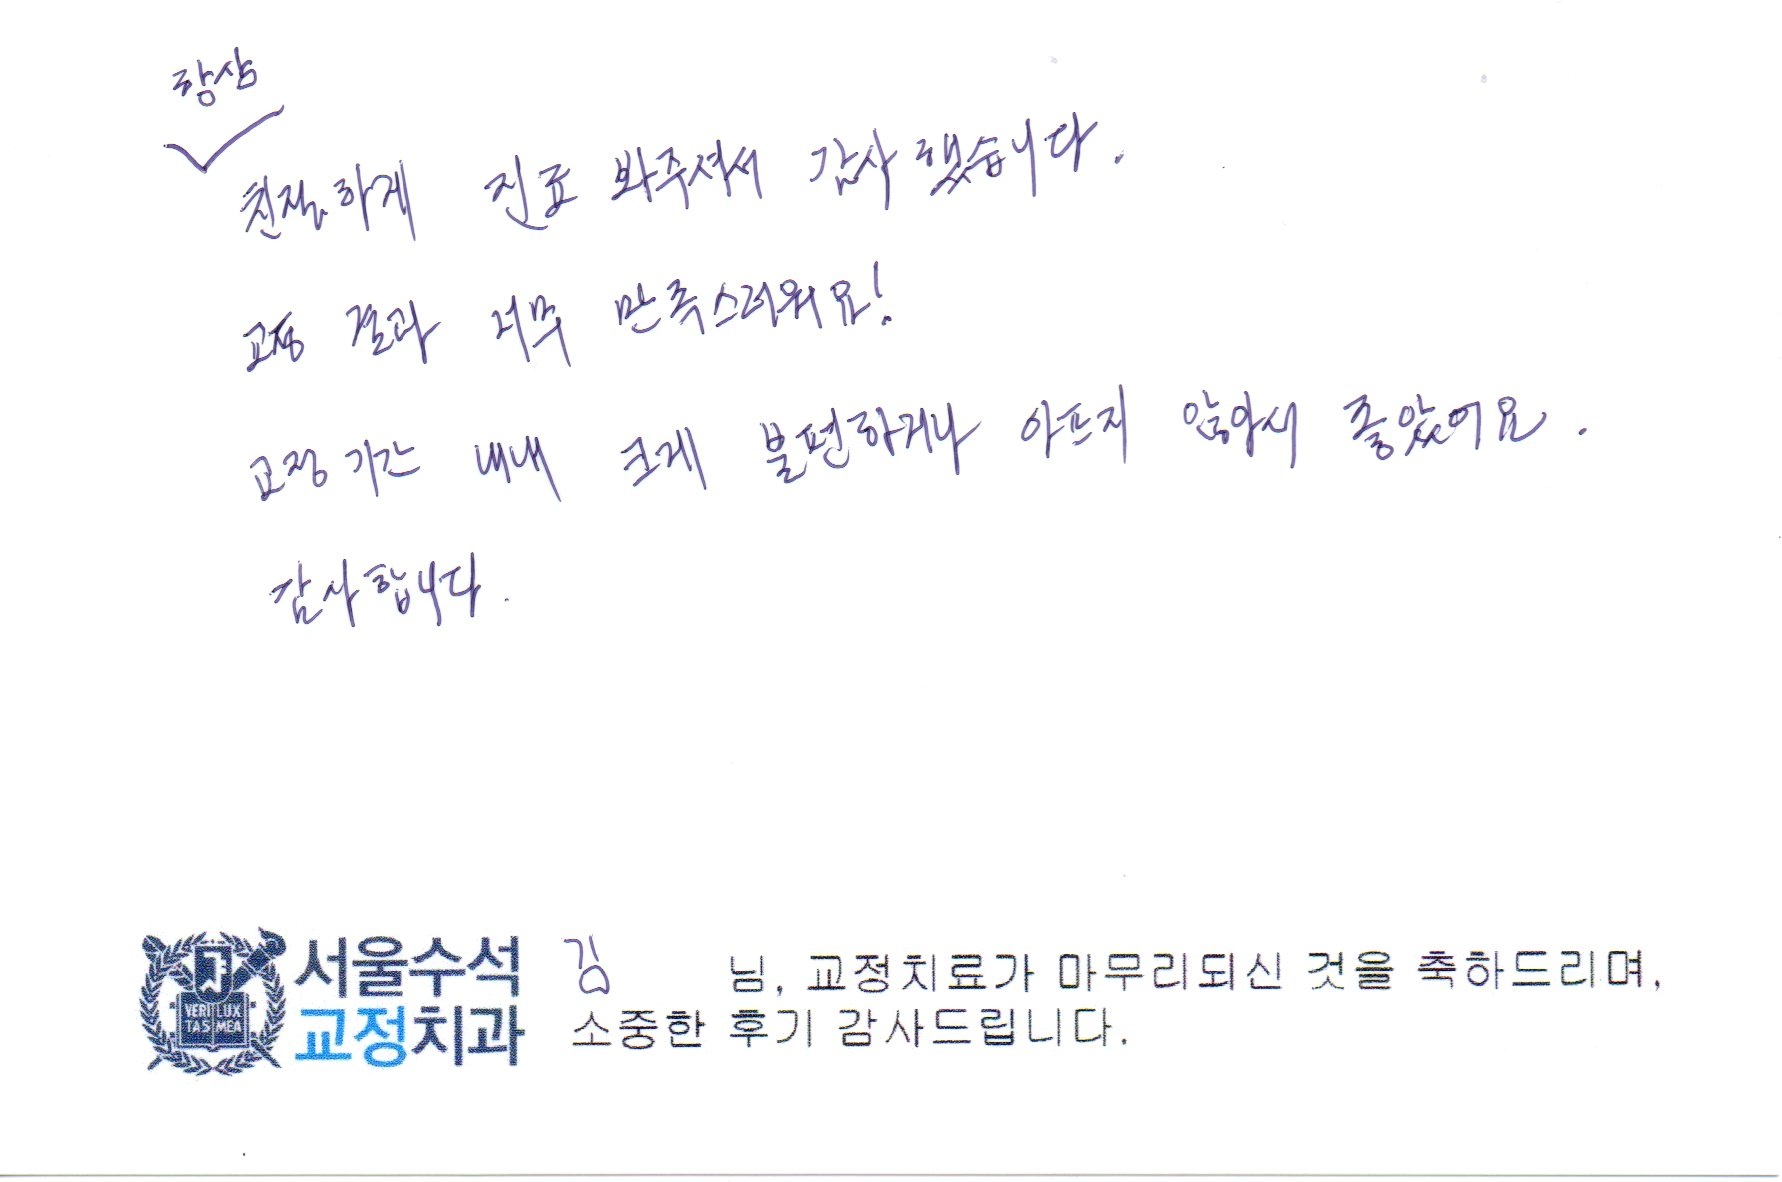 항상
친절하게 진료 봐주셔서 감사했습니다.
교정 결과 너무 만족스러워요!
교정 기간 내내 크게 불편하거나 아프지 않아서 좋았어요.
감사합니다.
VERI LUX
TAS MEA
서울수석
교정치과
김 님, 교정치료가 마무리되신 것을 축하드리며,
소중한 후기 감사드립니다.